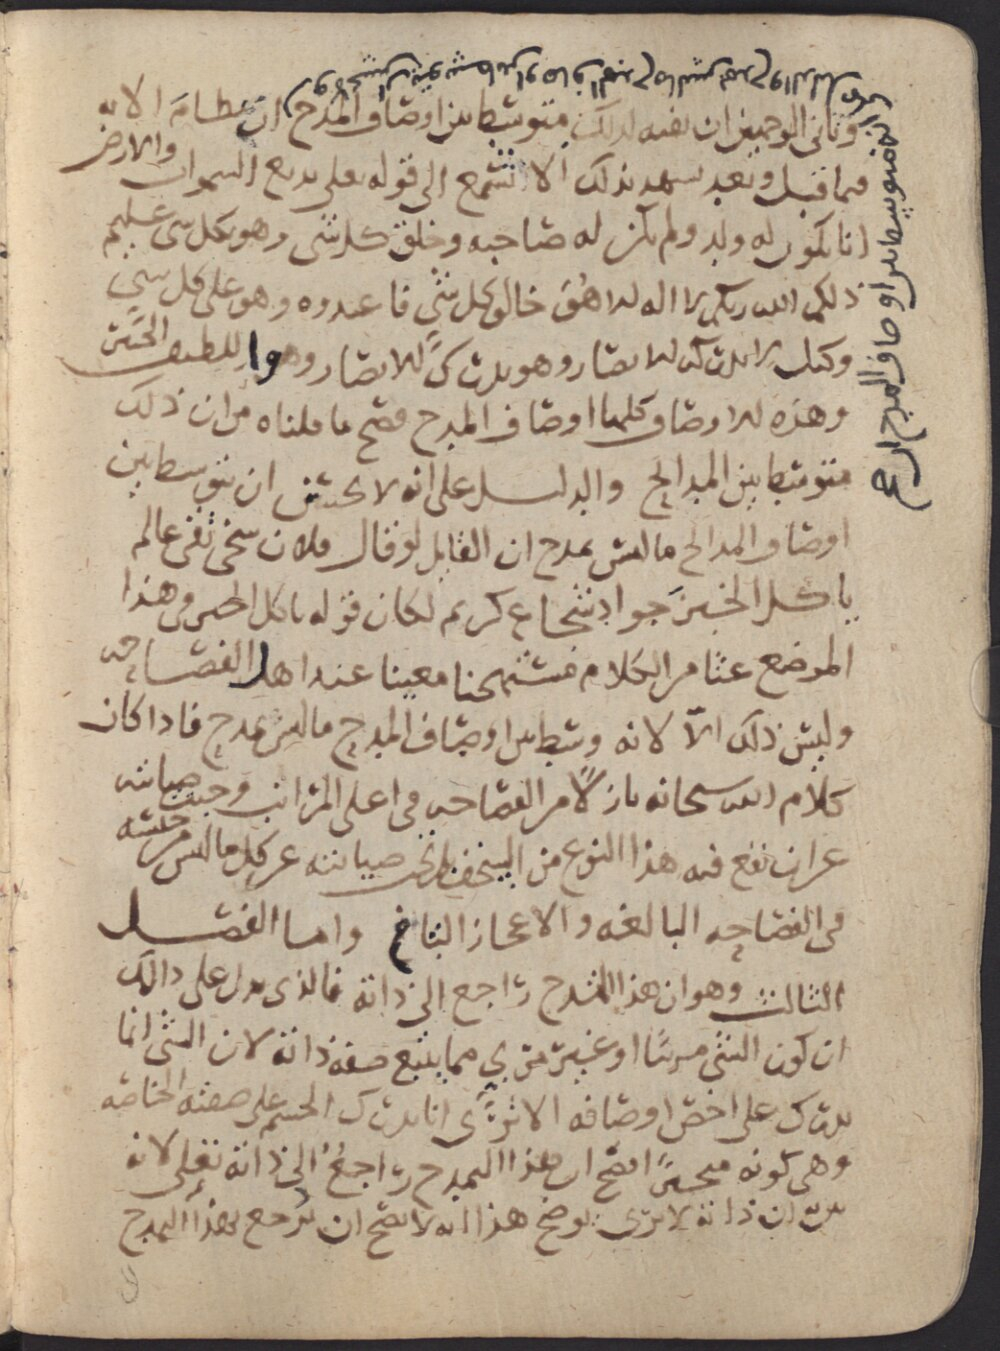 وثاني الوجهين ان نفيه لذلك متوسط بين اوصاف المدح ان نظام الايه
فما قبل وبعد يشهد بذلك الا تسمع الى قوله تعلى بديع السموات والارض
انا يكون له ولد ولم تكن له صاحبه وخلق كل شى وهو بكل شى عليم
ذلكم الله ربكم لا اله الا هو خالق كل شي فاعبدوه وهو على كل شي
وكيل لا تدركه الابصار وهو يدرك الابصار وهو اللطيف الخبير
وهذه الاوصاف كلها اوصاف المدح فصح ما قلناه من ان ذلك
متوسط بين المدايح والدليل على انه لا يحسن ان يتوسط بين
اوصاف المدايح ما ليس بمدح ان القايل لو قال فلان سخي تقي عالم
ياكل الخبز جواد شجاع كريم لكان قوله ياكل الخبز في هذا
الموضع غثا من الكلام مستهجنا معيبا عند اهل الفصاحه
وليس ذلك الا لانه وسط بين اوصاف المدح ما ليس بمدح فاذا كان
كلام الله سبحانه نازلا من الفصاحه في اعلى المراتب وجبت صيانته
عن ان يقع فيه هذا النوع من السخف صيانته عن كل ما ليس من جنسه
في الفصاحه البالغه والاعجاز البالغ واما الفصل
الثالث وهو ان هذا التمدح راجع الى ذاته فالذى يدل على ذالك
ان كون الشي مرئيا او غير مرئي مما يتبع صفه ذاته لان الشي انما
يدرك على اخص اوصافه الا ترى انا ندرك الجسم على صفته الخاصه
وهي كونه متحيزا فصح ان هذا التمدح راجع الى ذاته تعلى لانه
بين ان ذاته لا ترى يوضح هذا انه لا يصح ان يرجع بهذا التمدح
انه متوسط بين اوصاف المدح